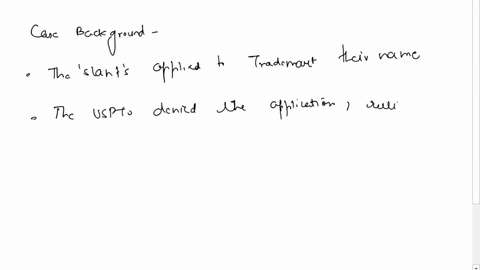 Case Background -
• The 'slant's applied to Trademark their name
• The USPTO denied the application, ruli